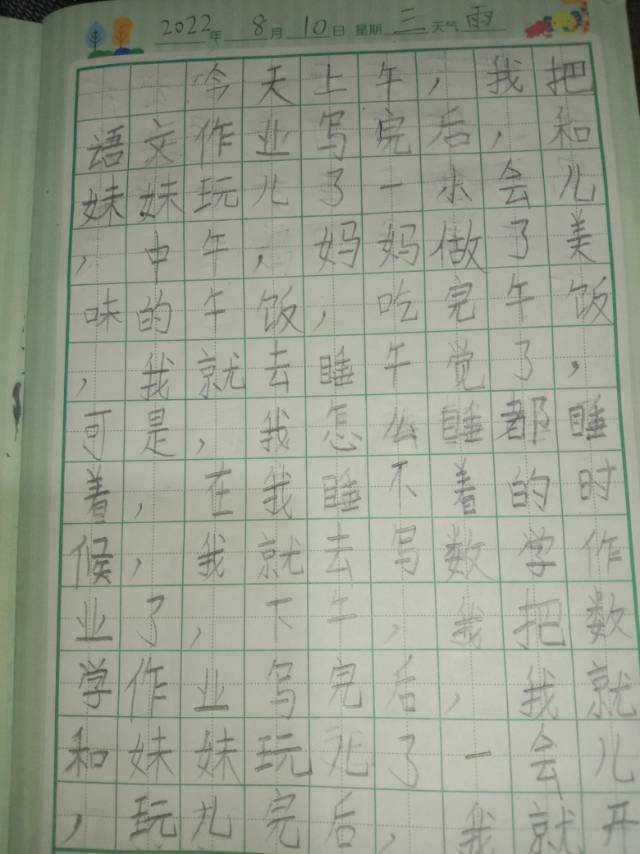 2022年 8月 10日 星期 三 天气 雨
今天上午，我把
语文作业写完后，和
妹妹玩儿了一小会儿
，中午，妈妈做了美
味的午饭，吃完午饭
，我就去睡午觉了，
可是，我怎么睡都睡
着，在我睡不着的时
候，我就去写数学作
业了，下午，我把数
学作业写完后，我就
和妹妹玩儿了一会儿
，玩儿完后，我就开